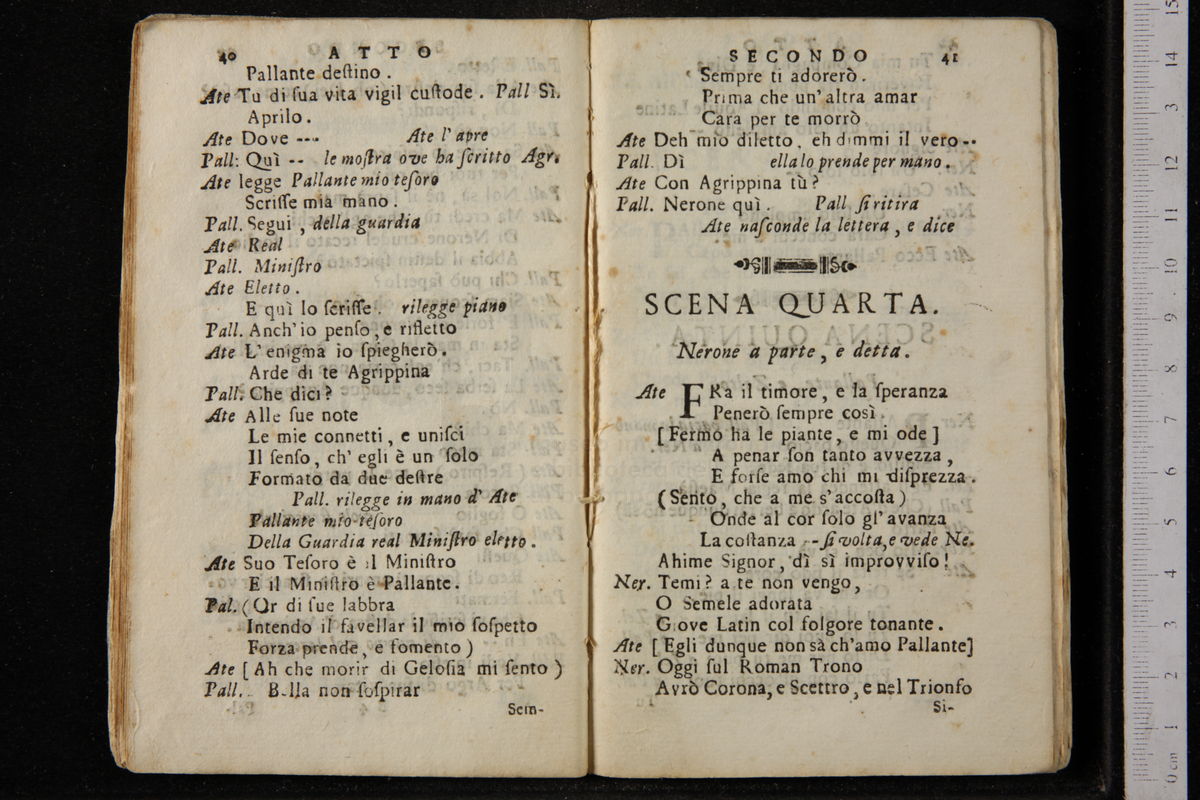 40 ATTO
Pallante deſtino .
Ate Tu di ſua vita vigil cuſtode . Pall Sì.
Aprilo .
Ate Dove ---- Ate l' apre
Pall: Quì -- le moſtra ove ha ſcritto Agr.
Ate legge Pallante mio teſoro
Scriſſe mia mano .
Pall. Segui , della guardia
Ate Real
Pall. Miniſtro
Ate Eletto .
E quì lo ſcriſſe . rilegge piano
Pall. Anch' io penſo , e rifletto
Ate L' enigma io ſpiegherò .
Arde di te Agrippina
Pall. Che dici ?
Ate Alle ſue note
Le mie connetti , e uniſci
Il ſenſo , ch' egli è un ſolo
Formato da due deſtre
Pall. rilegge in mano d' Ate
Pallante mio teſoro
Della Guardia real Miniſtro eletto .
Ate Suo Teſoro è il Miniſtro
E il Miniſtro è Pallante .
Pal. ( Or di ſue labbra
Intendo il favellar il mio ſoſpetto
Forza prende , e fomento )
Ate [ Ah che morir di Geloſia mi ſento )
Pall. Bella non ſoſpirar
Sem-
SECONDO 41
Sempre ti adorerò .
Prima che un' altra amar
Cara per te morrò
Ate Deh mio diletto , eh dimmi il vero --
Pall. Dì ella lo prende per mano .
Ate Con Agrippina tù ?
Pall. Nerone quì . Pall ſi ritira
Ate naſconde la lettera , e dice
SCENA QUARTA.
Nerone a parte , e detta .
Ate FRa il timore , e la ſperanza
Penerò ſempre così .
[ Fermo ha le piante , e mi ode ]
A penar ſon tanto avvezza ,
E forſe amo chi mi diſprezza .
( Sento , che a me s' accoſta )
Onde al cor ſolo gl' avanza
La coſtanza -- ſi volta, e vede Ne.
Ahime Signor , dì sì improvviſo !
Ner. Temi ? a te non vengo ,
O Semele adorata
Giove Latin col folgore tonante .
Ate [ Egli dunque non sà ch'amo Pallante]
Ner. Oggi ſul Roman Trono
Avrò Corona, e Scettro , e nel Trionfo
Si-